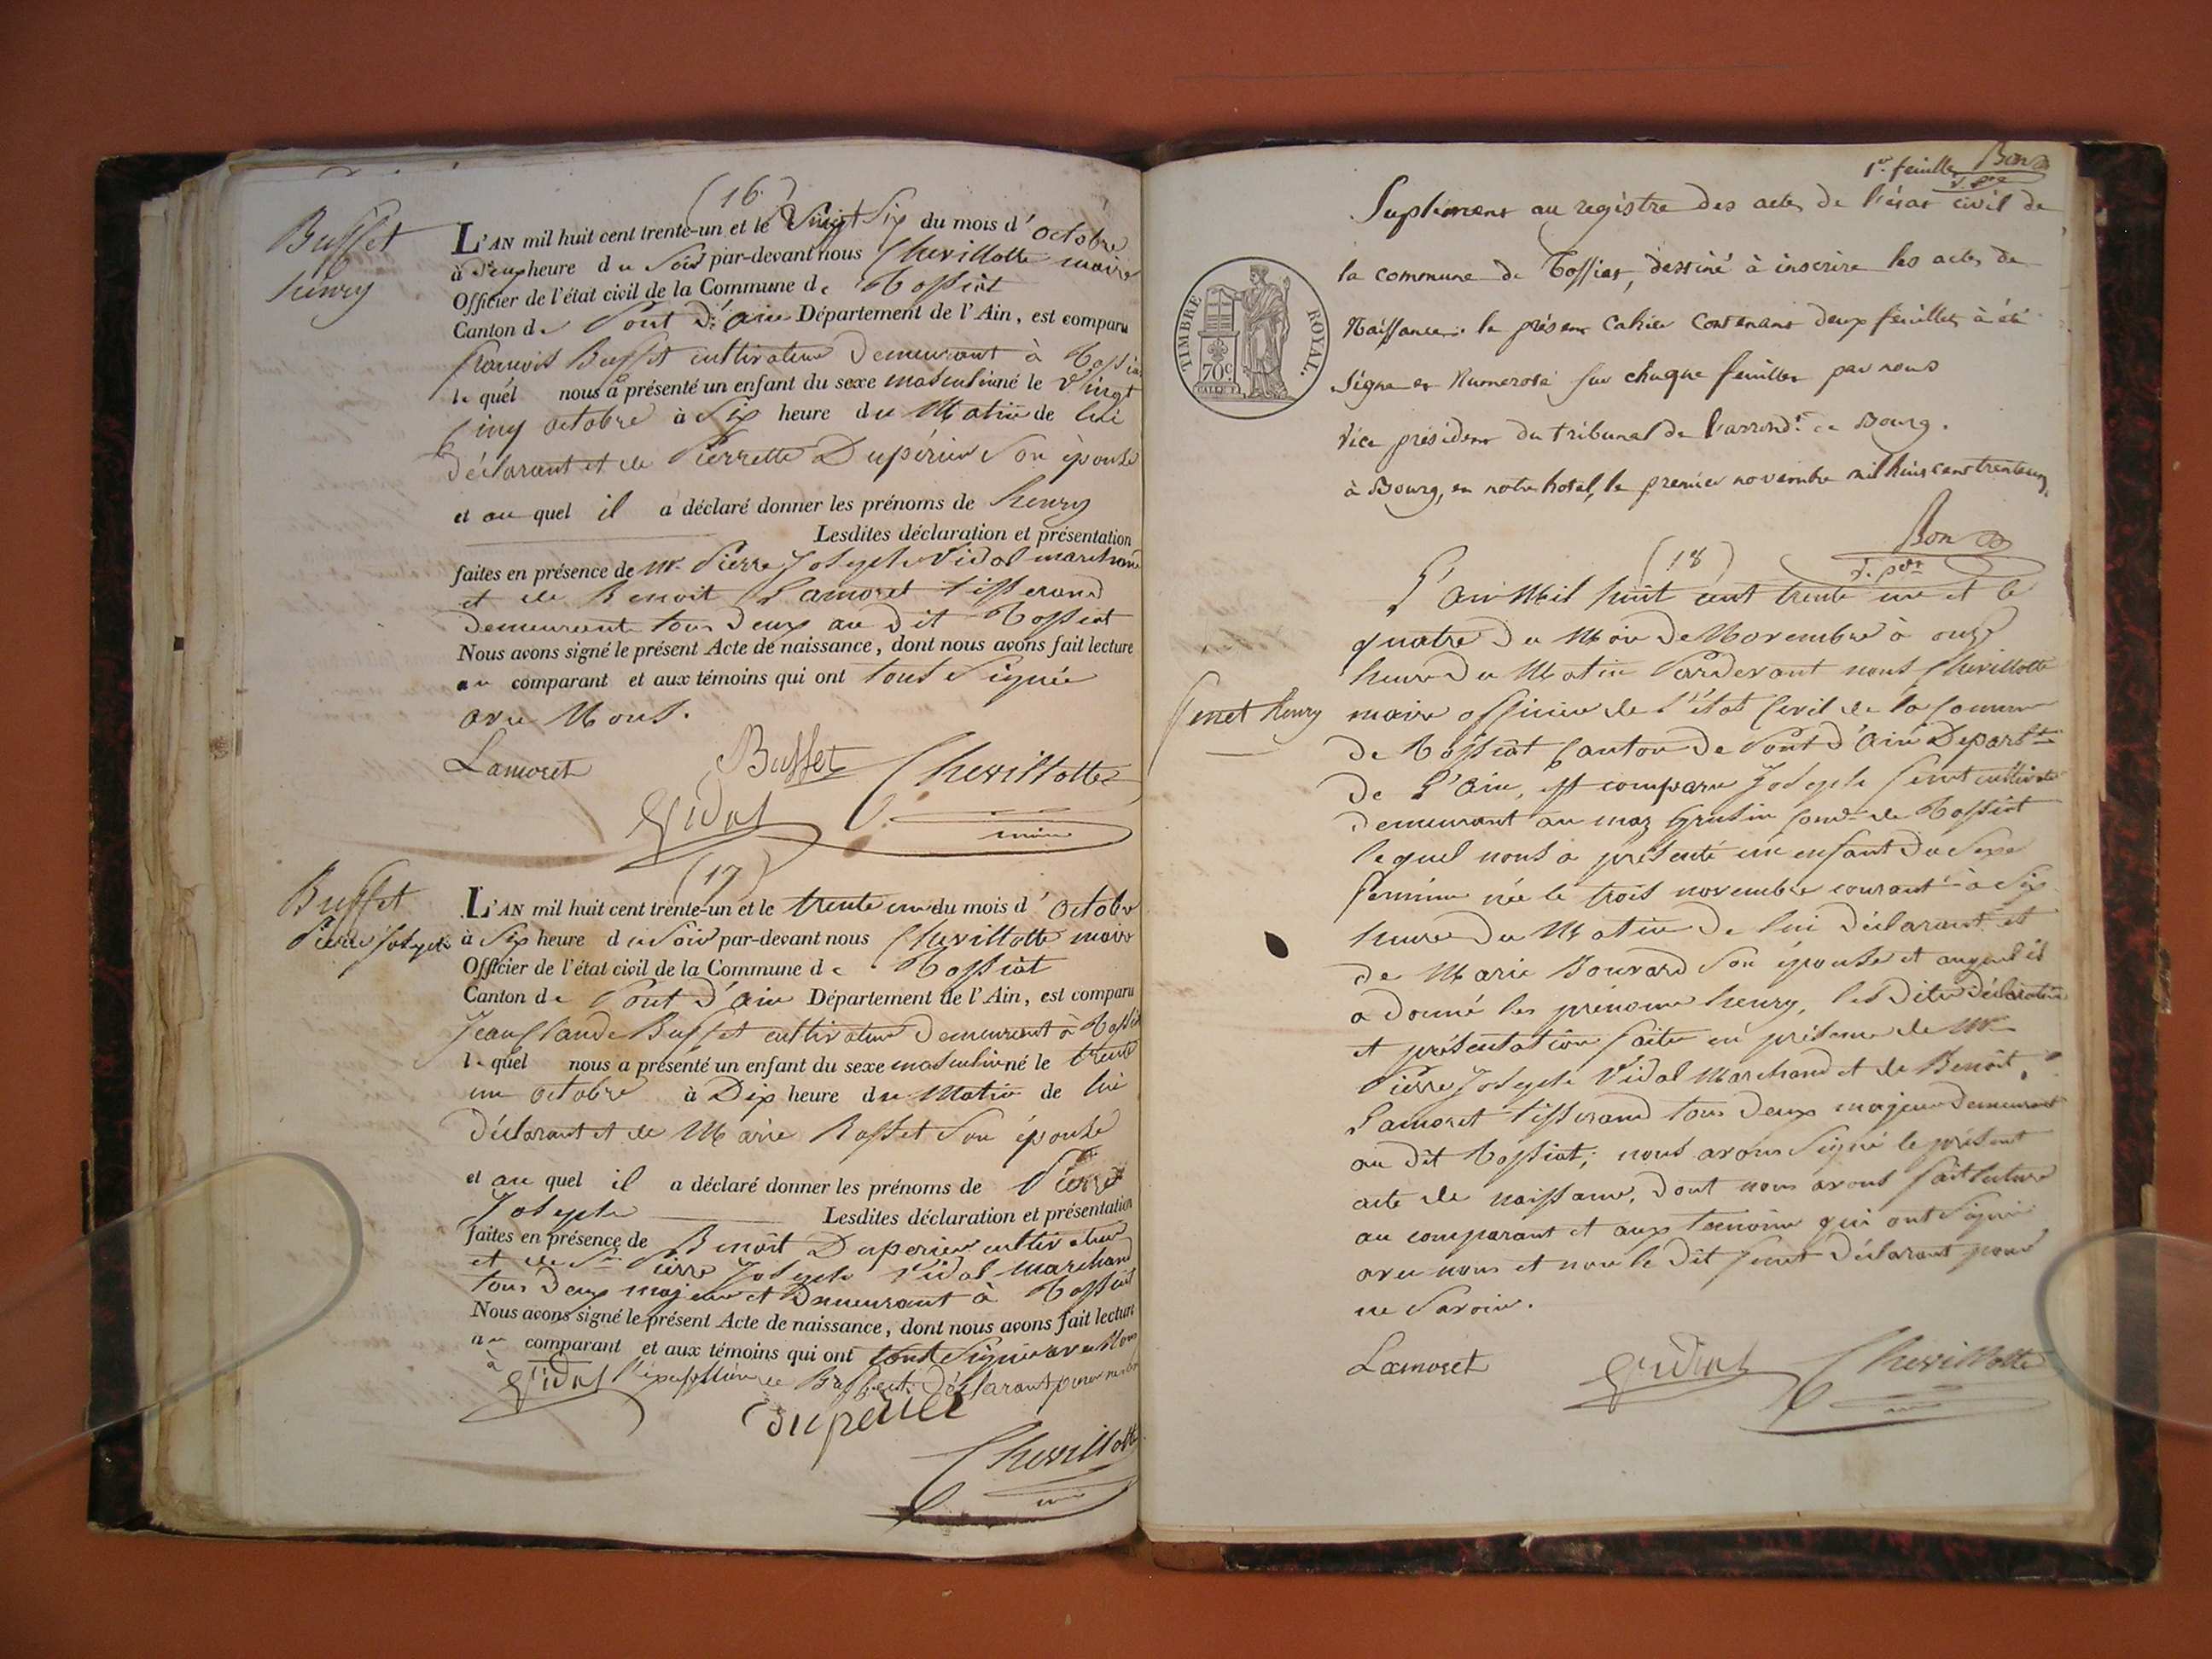 (16)
Buffet
henry
L'AN mil huit cent trente-un et le Vingt Six du mois d'octobre
à deux heure du Soir par-devant nous Chevillotte maire
Officier de l'état civil de la Commune de Tossiat
Canton de Pont d'ain Département de l'Ain, est comparu
francois Buffet cultivateur demeurant à Tossia
lequel nous a présenté un enfant du sexe masculin né le Vingt
Cinq octobre à Six heure du Matin de lui
déclarant et de Pierrette Dupérier Son épouse
et au quel il a déclaré donner les prénoms de henry
Lesdites déclaration et présentation
faites en présence de Mr. Pierre Joseph Vidal marchand
et de Benoit Lamoret tisserand
demeurent tous deux au dit Tossiat
Nous avons signé le présent Acte de naissance, dont nous avons fait lecture
au comparant et aux témoins qui ont tous Signée
avec Nous.
Lamoret Buffet Chevillotte
Vidal maire
(17)
Buffet
Pierre Joseph
L'AN mil huit cent trente-un et le trente un du mois d'octobre
à Six heure du Soir par-devant nous Chevillotte maire
Officier de l'état civil de la Commune de Tossiat
Canton de Pont d'ain Département de l'Ain, est comparu
Jean Claude Buffet cultivateur demeurant à Tossiat
lequel nous a présenté un enfant du sexe masculin né le trente
un octobre à Dix heure du Matin de lui
déclarant et de Marie Rosset Son épouse
et au quel il a déclaré donner les prénoms de Pierre
Joseph Lesdites déclaration et présentation
faites en présence de Benoit Duperier cultivateur
et de Sr Pierre Joseph Vidal marchand
tous deux majeur et Demeurant à Tossiat
Nous avons signé le présent Acte de naissance, dont nous avons fait lecture
au comparant et aux témoins qui ont tous Signée avec Nous
à l'éxception de Buffet déclarant pour ne
Vidal duperier
Chevillotte
1er feuillet Bon
v. pt
Suplément au registre des actes de l'état civil de
la commune de Tossiat, destiné à inscrire les actes de
Naissance. le présent Cahier Contenant deux feuillets à été
Signé et Numeroté sur chaque feuillet par nous
Vice président du tribunal de l'arrondt de Bourg.
à Bourg, en notre hotel, le premier novembre mil huit cent trente un.
TIMBRE ROYAL.
70c.
Bon
v. pdt
(18)
L'an Mil huit cent trente un et le
quatre du Mois de Novembre à onze
heure du Matin Pardevant nous Chevillotte
fenet henry
maire officier de l'état Civil de la Commune
de Tossiat Canton de Pont d'ain Départt
de L'ain, est comparu Joseph fenet cultivate
demeurant au maz Grusin Comd de Tossiat
lequel nous a présenté un enfant du Sexe
feminin née le trois novembre courant à Six
heure du Matin de lui déclarant et
de Marie Bouvard Son épouse et auquel il
a donné les prénoms henry, les dites déclaration
et présentation faites en présence de Mr
Pierre Joseph Vidal Marchand et de Benoît
Lamoret tisserand tous deux majeur demeurant
au dit Tossiat; nous avons Signé le présent
acte de naissance, dont nous avons fait lecture
au comparant et aux témoins qui ont Signée
avec nous et non le dit fenet déclarant pour
ne Savoir.
Lamoret Vidal Chevillotte